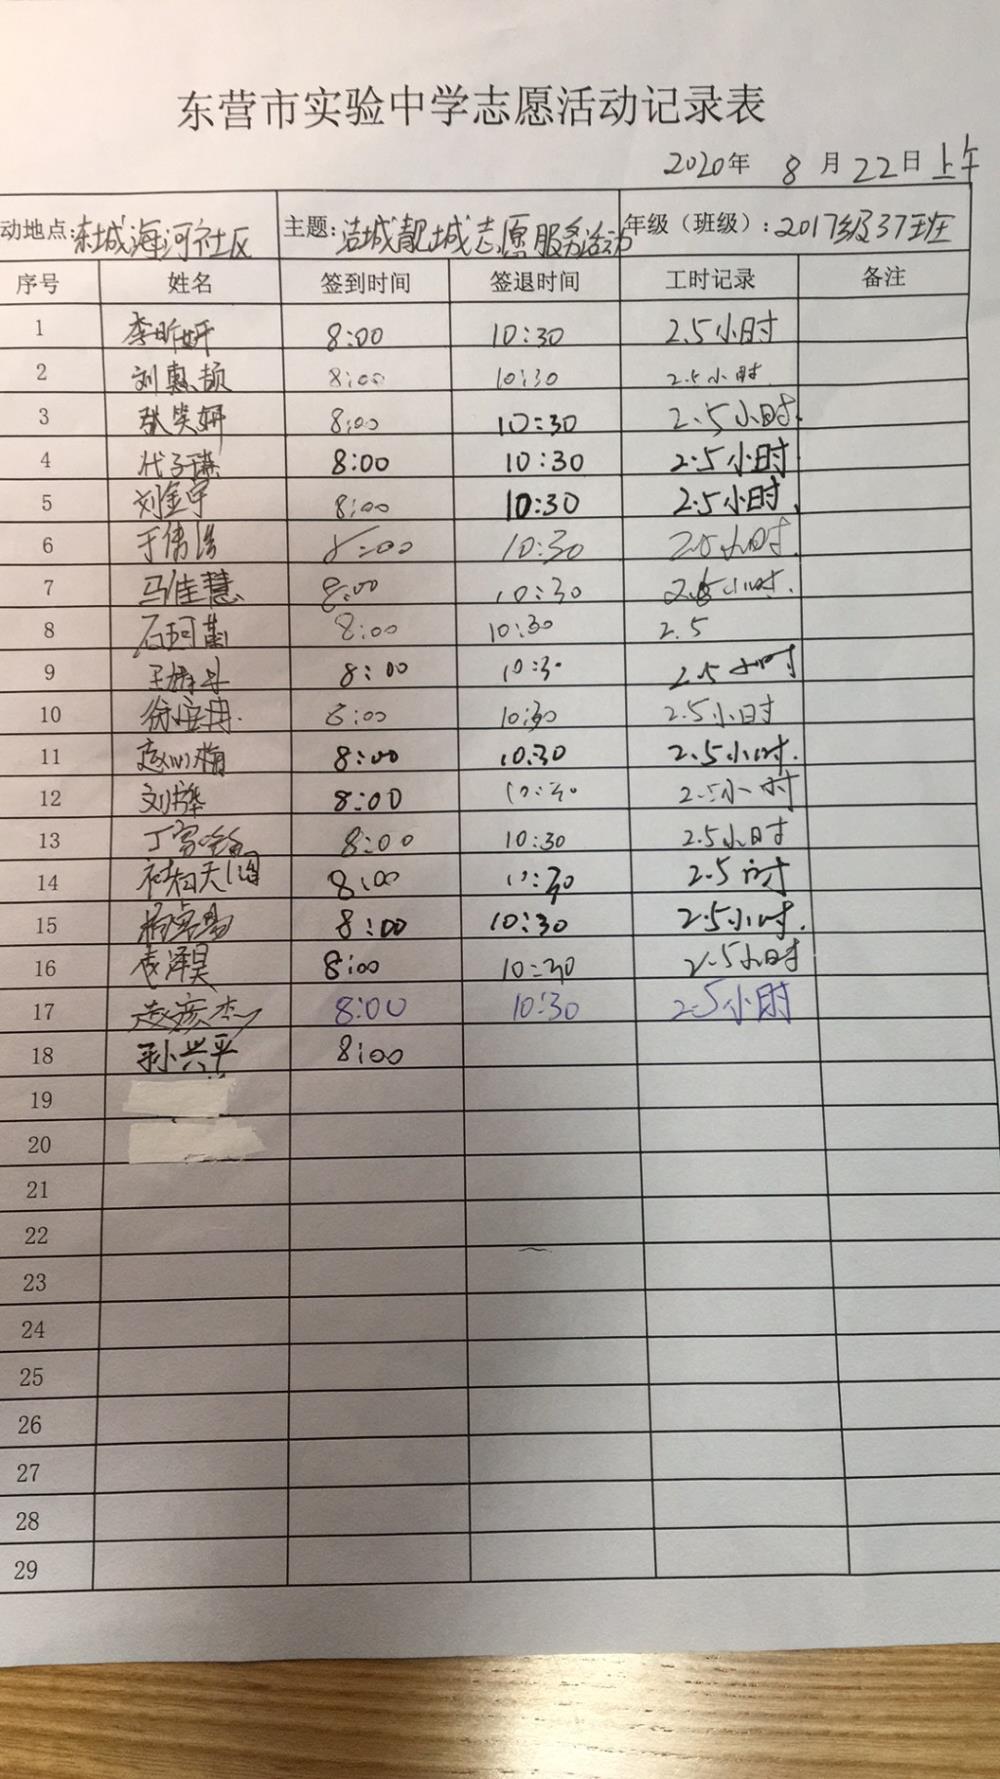 东营市实验中学志愿活动记录表
2020年 8 月 22日 上午
动地点: 城海河社区 主题: 洁城靓城志愿服务活动 年级（班级）: 2017级37班
序号 姓名 签到时间 签退时间 工时记录 备注
1 李昕妍 8:00 10:30 2.5小时
2 刘惠颉 8:00 10:30 2.5小时.
3 张笑妍 8:00 10:30 2.5小时.
4 代子琪 8:00 10:30 2.5小时
5 刘金宇 8:00 10:30 2.5小时.
6 于倩 8:00 10:30 2.5小时.
7 马佳慧 8:00 10:30 2.5小时.
8 石珂 8:00 10:30 2.5
9 王 8:00 10:30 2.5小时
10 徐 冉. 8:00 10:30 2.5小时
11 赵 梅 8:00 10:30 2.5小时.
12 刘 8:00 10:30 2.5小时
13 丁 8:00 10:30 2.5小时
14 8:00 10:30 2.5小时
15 杨 8:00 10:30 2.5小时.
16 袁泽昊 8:00 10:30 2.5小时
17 赵彦杰 8:00 10:30 2.5小时
18 孙兴平 8:00
19
20
21
22
23
24
25
26
27
28
29